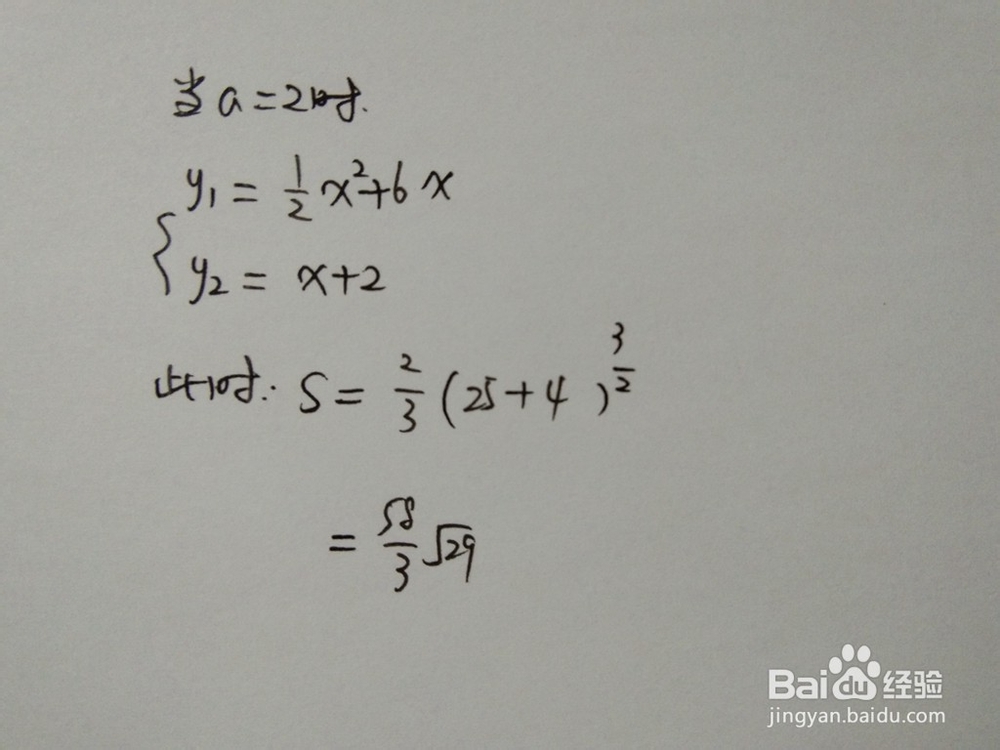 当 a = 2时.
y₁ = 1/2 x² + 6x
{ y₂ = x + 2
此时: S = 2/3 (25 + 4)^(3/2)
= 58/3 √29
Baidu 经验
jingyan.baidu.com